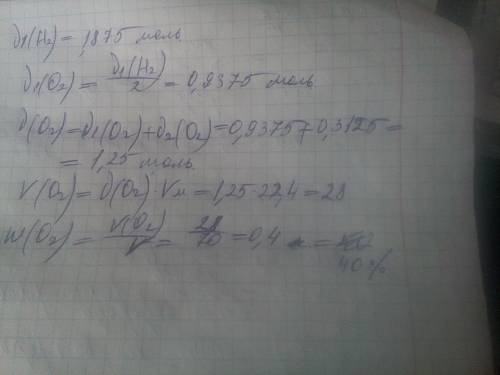 ν₁(H₂) = 1,875 моль
ν₁(O₂) = ν₁(H₂)/2 = 0,9375 моль
ν(O₂) = ν₁(O₂) + ν₂(O₂) = 0,9375 + 0,3125 =
= 1,25 моль
V(O₂) = ν(O₂) · Vм = 1,25 · 22,4 = 28
w(O₂) = V(O₂)/V = 28/70 = 0,4 =
40 %